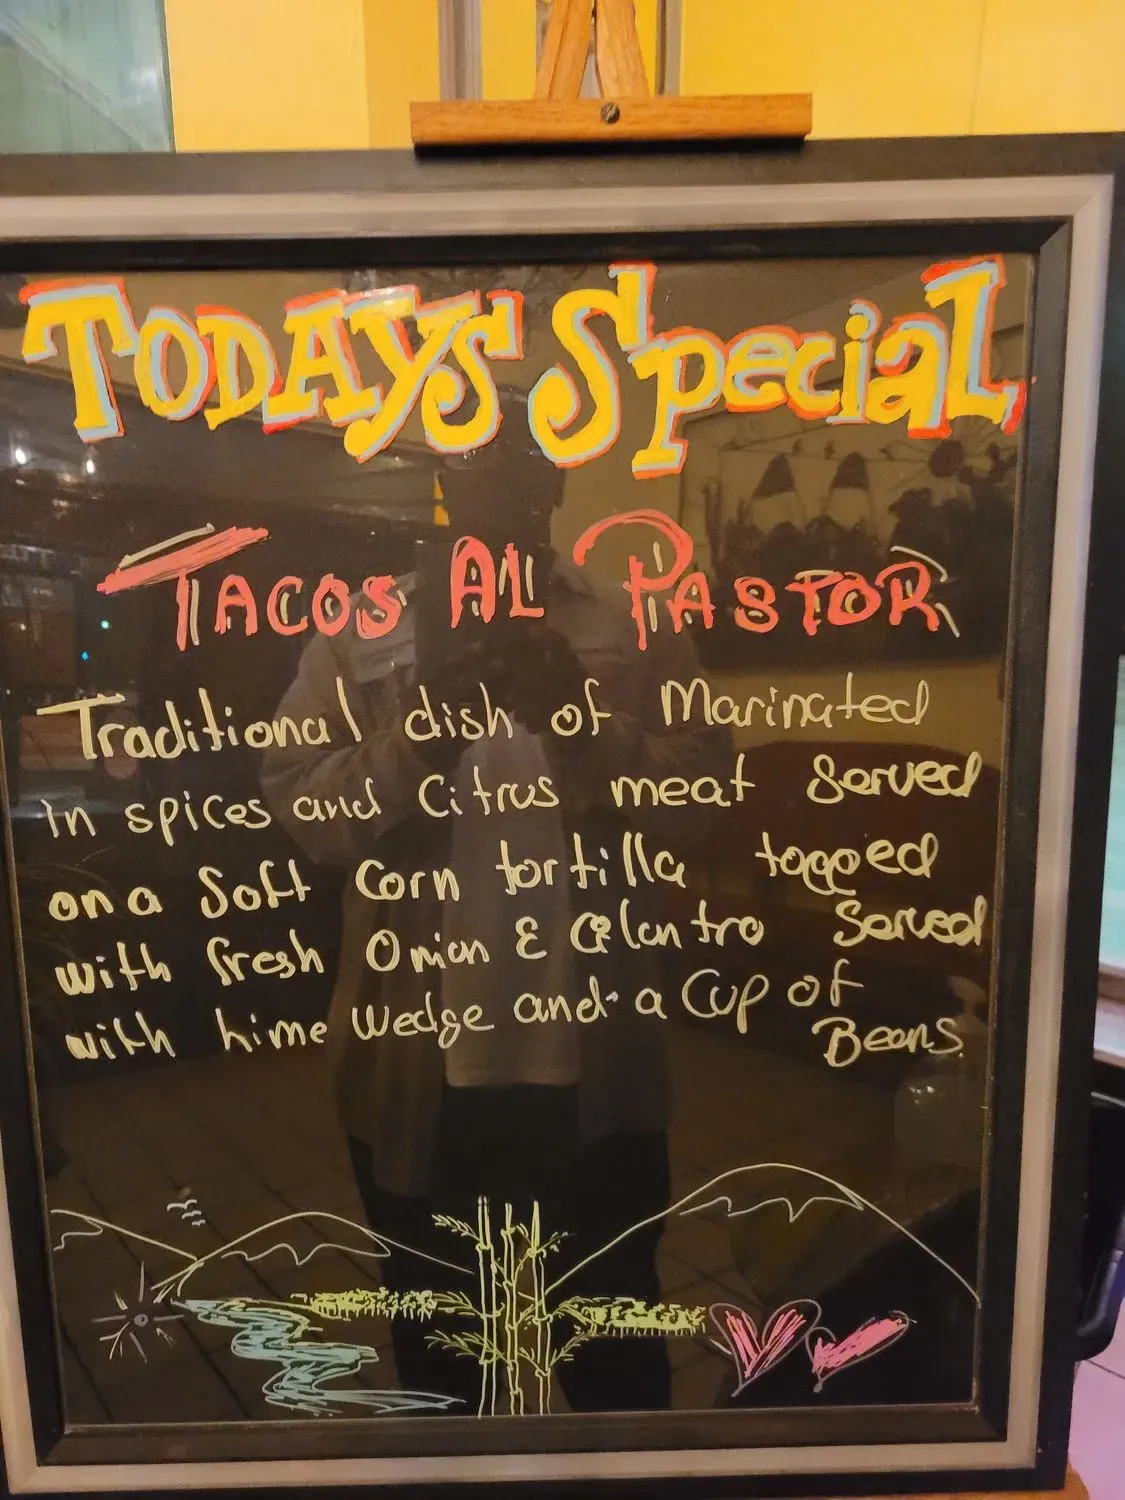 TODAYS Special
TACOS AL PASTOR
Traditional dish of Marinated
in spices and Citrus meat Served
on a Soft Corn tortilla topped
with fresh Onion & Cilantro Served
with Lime Wedge and a Cup of
Beans.